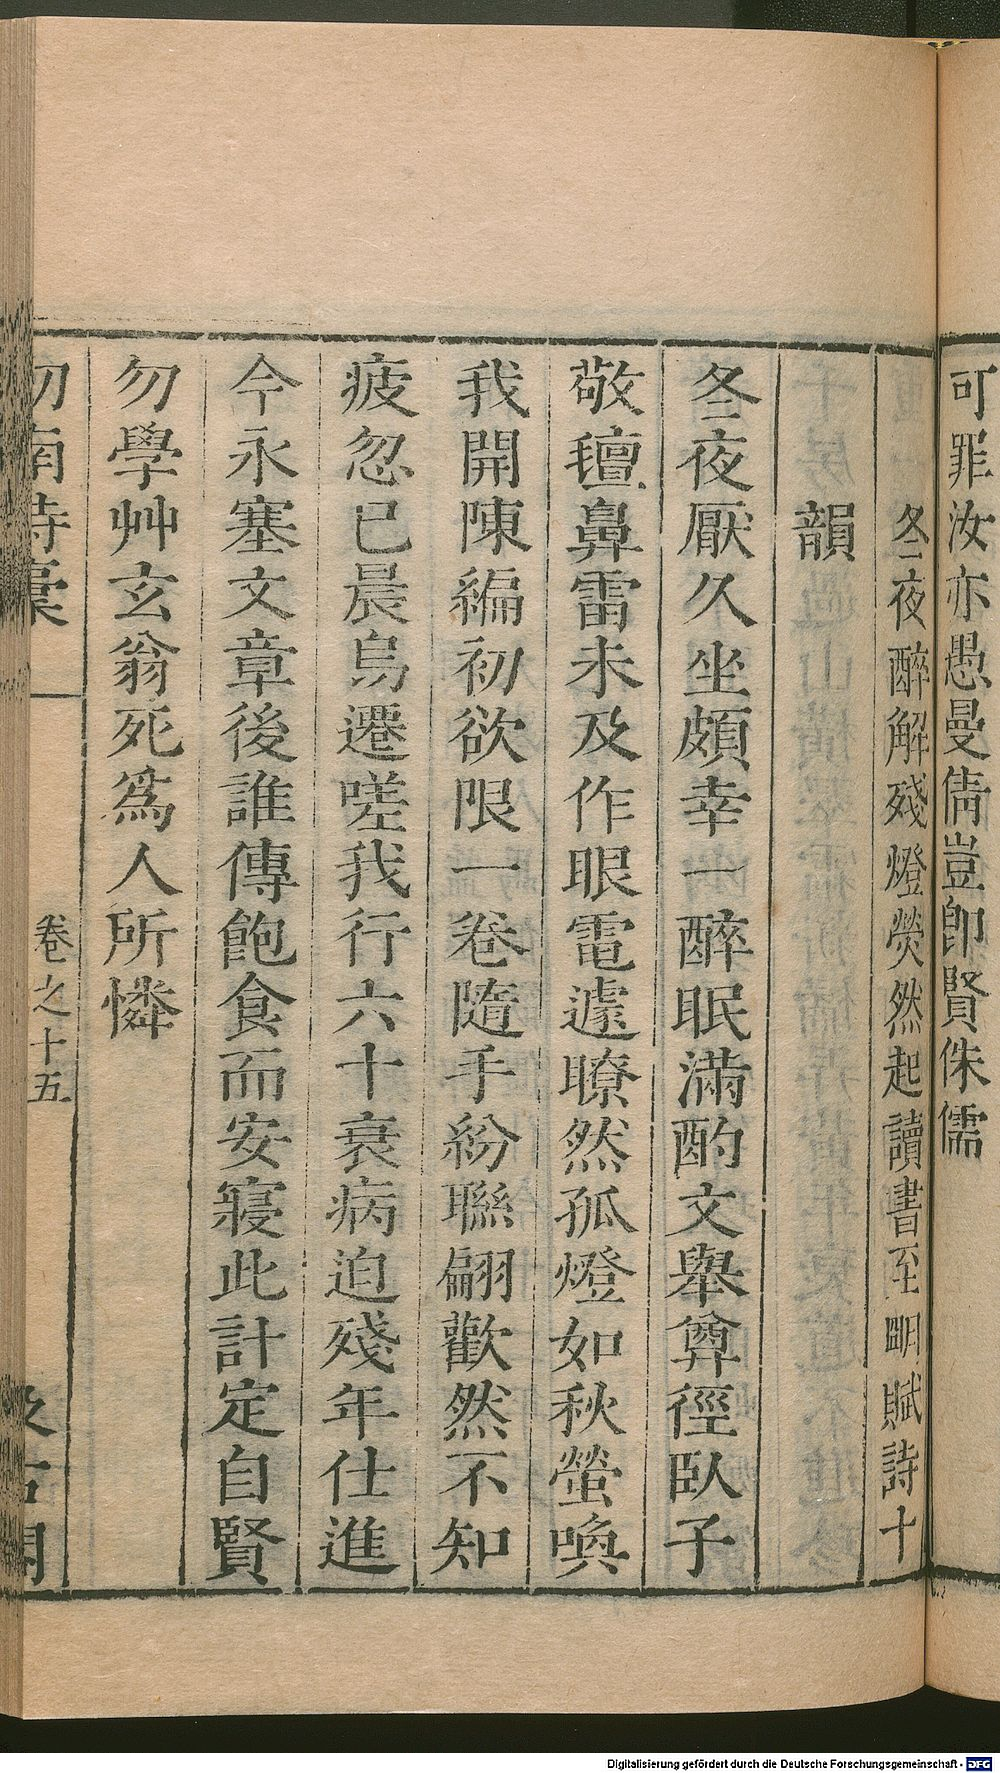 可罪汝亦愚曼倩豈卽賢侏儒
冬夜醉解殘燈熒然起讀書至明賦詩十
韻
冬夜厭久坐頗幸一醉眠滿酌文舉尊徑臥子
敬氊鼻雷未及作眼電遽瞭然孤燈如秋螢喚
我開陳編初欲限一卷隨手紛聯翩歡然不知
疲忽已晨烏遷嗟我行六十衰病迫殘年仕進
今永塞文章後誰傳飽食而安寢此計定自賢
勿學艸玄翁死爲人所憐
卷之十五
Digitalisierung gefördert durch die Deutsche Forschungsgemeinschaft - DFG